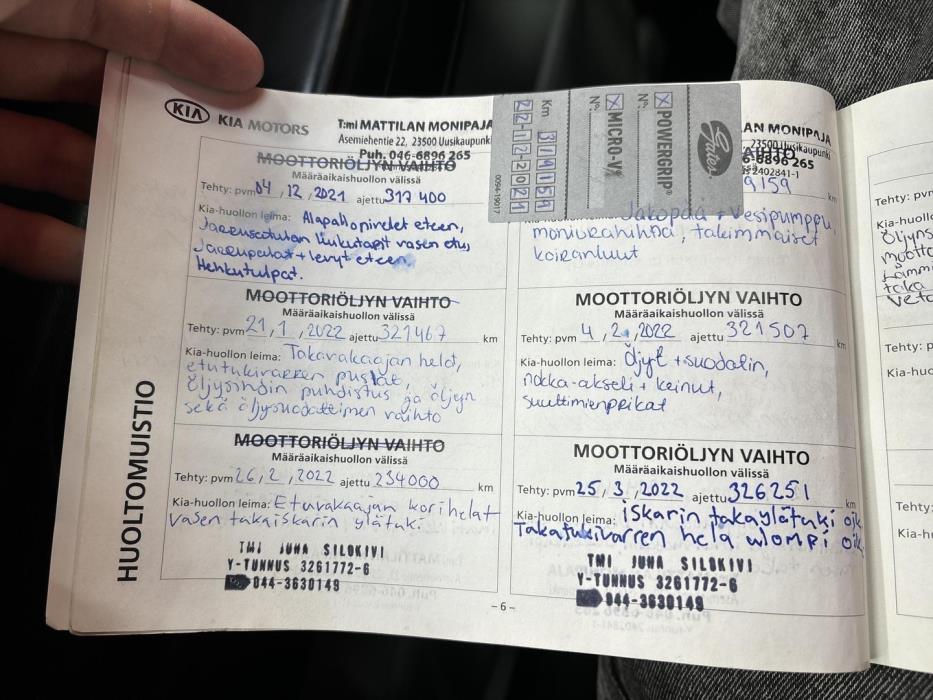 KIA KIA MOTORS
T:mi MATTILAN MONIPAJA
Asemiehentie 22, 23500 Uusikaupunki
Puh. 046-6896 265
MOOTTORIÖLJYN VAIHTO
Määräaikaishuollon välissä
Tehty: pvm 04, 12, 2021 ajettu 317 400
Kia-huollon leima: Alapallonivelet eteen,
Jarrusatulan liukutapit vasen etu,
Jarrupalat + levyt eteen.
Hehkutulpat.
MOOTTORIÖLJYN VAIHTO
Määräaikaishuollon välissä
Tehty: pvm 21, 1, 2022 ajettu 321467 km
Kia-huollon leima: Takavakaajan helat,
etutukivarren puslat,
öljysihdin puhdistus ja öljyn
sekä öljysuodattimen vaihto
MOOTTORIÖLJYN VAIHTO
Määräaikaishuollon välissä
Tehty: pvm 26, 2, 2022 ajettu 234000 km
Kia-huollon leima: Etuvakaajan korihelat
vasen takaiskarin ylätuki
TMI JUHA SILOKIVI
Y-TUNNUS 3261772-6
044-3630149
HUOLTOMUISTIO
- 6 -
Gates
POWERGRIP®
N°.
MICRO-V®
N°.
Km 319159
22-12-2021
0094-19017
AN MONIPAJA
23500 Uusikaupunki
6-6896 265
2402841-1
AIHTO
9159 km
Jakopää + Vesipumppu,
moniurahihna, takimmaiset
koiranluut
MOOTTORIÖLJYN VAIHTO
Määräaikaishuollon välissä
Tehty: pvm 4, 2, 2022 ajettu 321507 km
Kia-huollon leima: Öljyt + suodatin,
nokka-akseli + keinut,
suuttimienpeikat
MOOTTORIÖLJYN VAIHTO
Määräaikaishuollon välissä
Tehty: pvm 25, 3, 2022 ajettu 326251 km
Kia-huollon leima: iskarin takaylätuki oik
Takatukivarren hela ulompi oik
TMI JUHA SILOKIVI
Y-TUNNUS 3261772-6
044-3630149
Tehty: pvm
Kia-huollo
Öljyns
mootto
taka
Tehty: p
Kia-huo
Tehty:
Kia-h